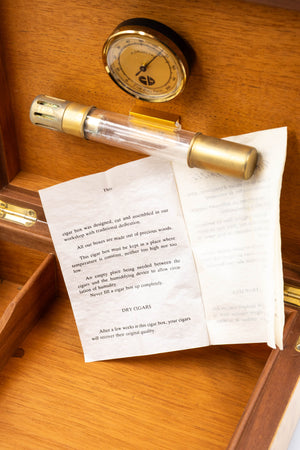 This
cigar box was designed, cut and assembled in our
workshop with traditional dedication.
All our boxes are made out of precious woods.
This cigar box must be kept in a place where
temperature is constant, neither too high nor too
low.
An empty place being needed between the
cigars and the humidifying device to allow circu-
lation of humidity.
Never fill a cigar box up completely.
DRY CIGARS
After a few weeks in this cigar box, your cigars
will recover their original quality.